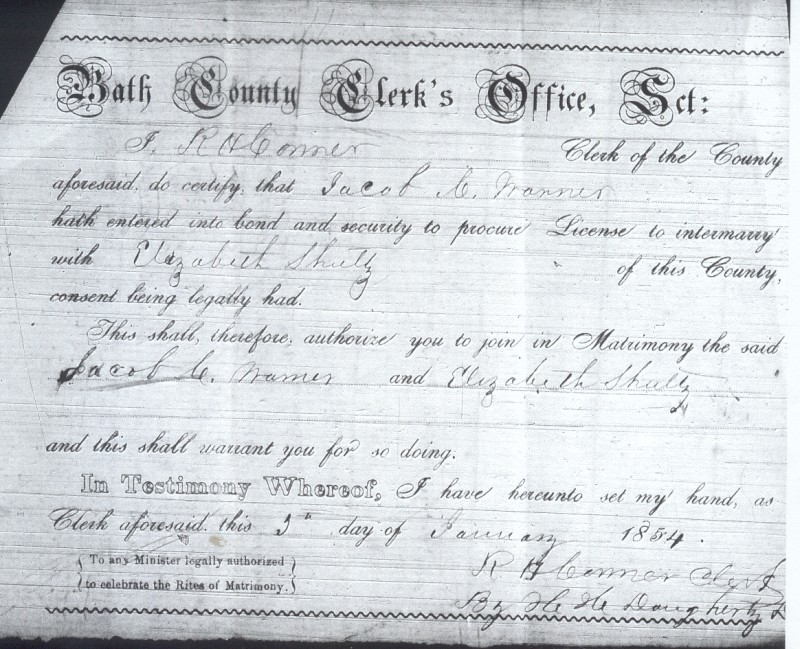 Bath County Clerk's Office, Sct:
I, R H Conner Clerk of the County
aforesaid, do certify, that Jacob C. Warner
hath entered into bond and security to procure License to intermarry
with Elizabeth Shultz of this County,
consent being legally had.
This shall, therefore, authorize you to join in Matrimony the said
Jacob C. Warner and Elizabeth Shultz
and this shall warrant you for so doing.
In Testimony Whereof, I have hereunto set my hand, as
Clerk aforesaid, this day of January 1854.
To any Minister legally authorized
to celebrate the Rites of Matrimony.
R H Conner Clerk
By He He Dougherty D